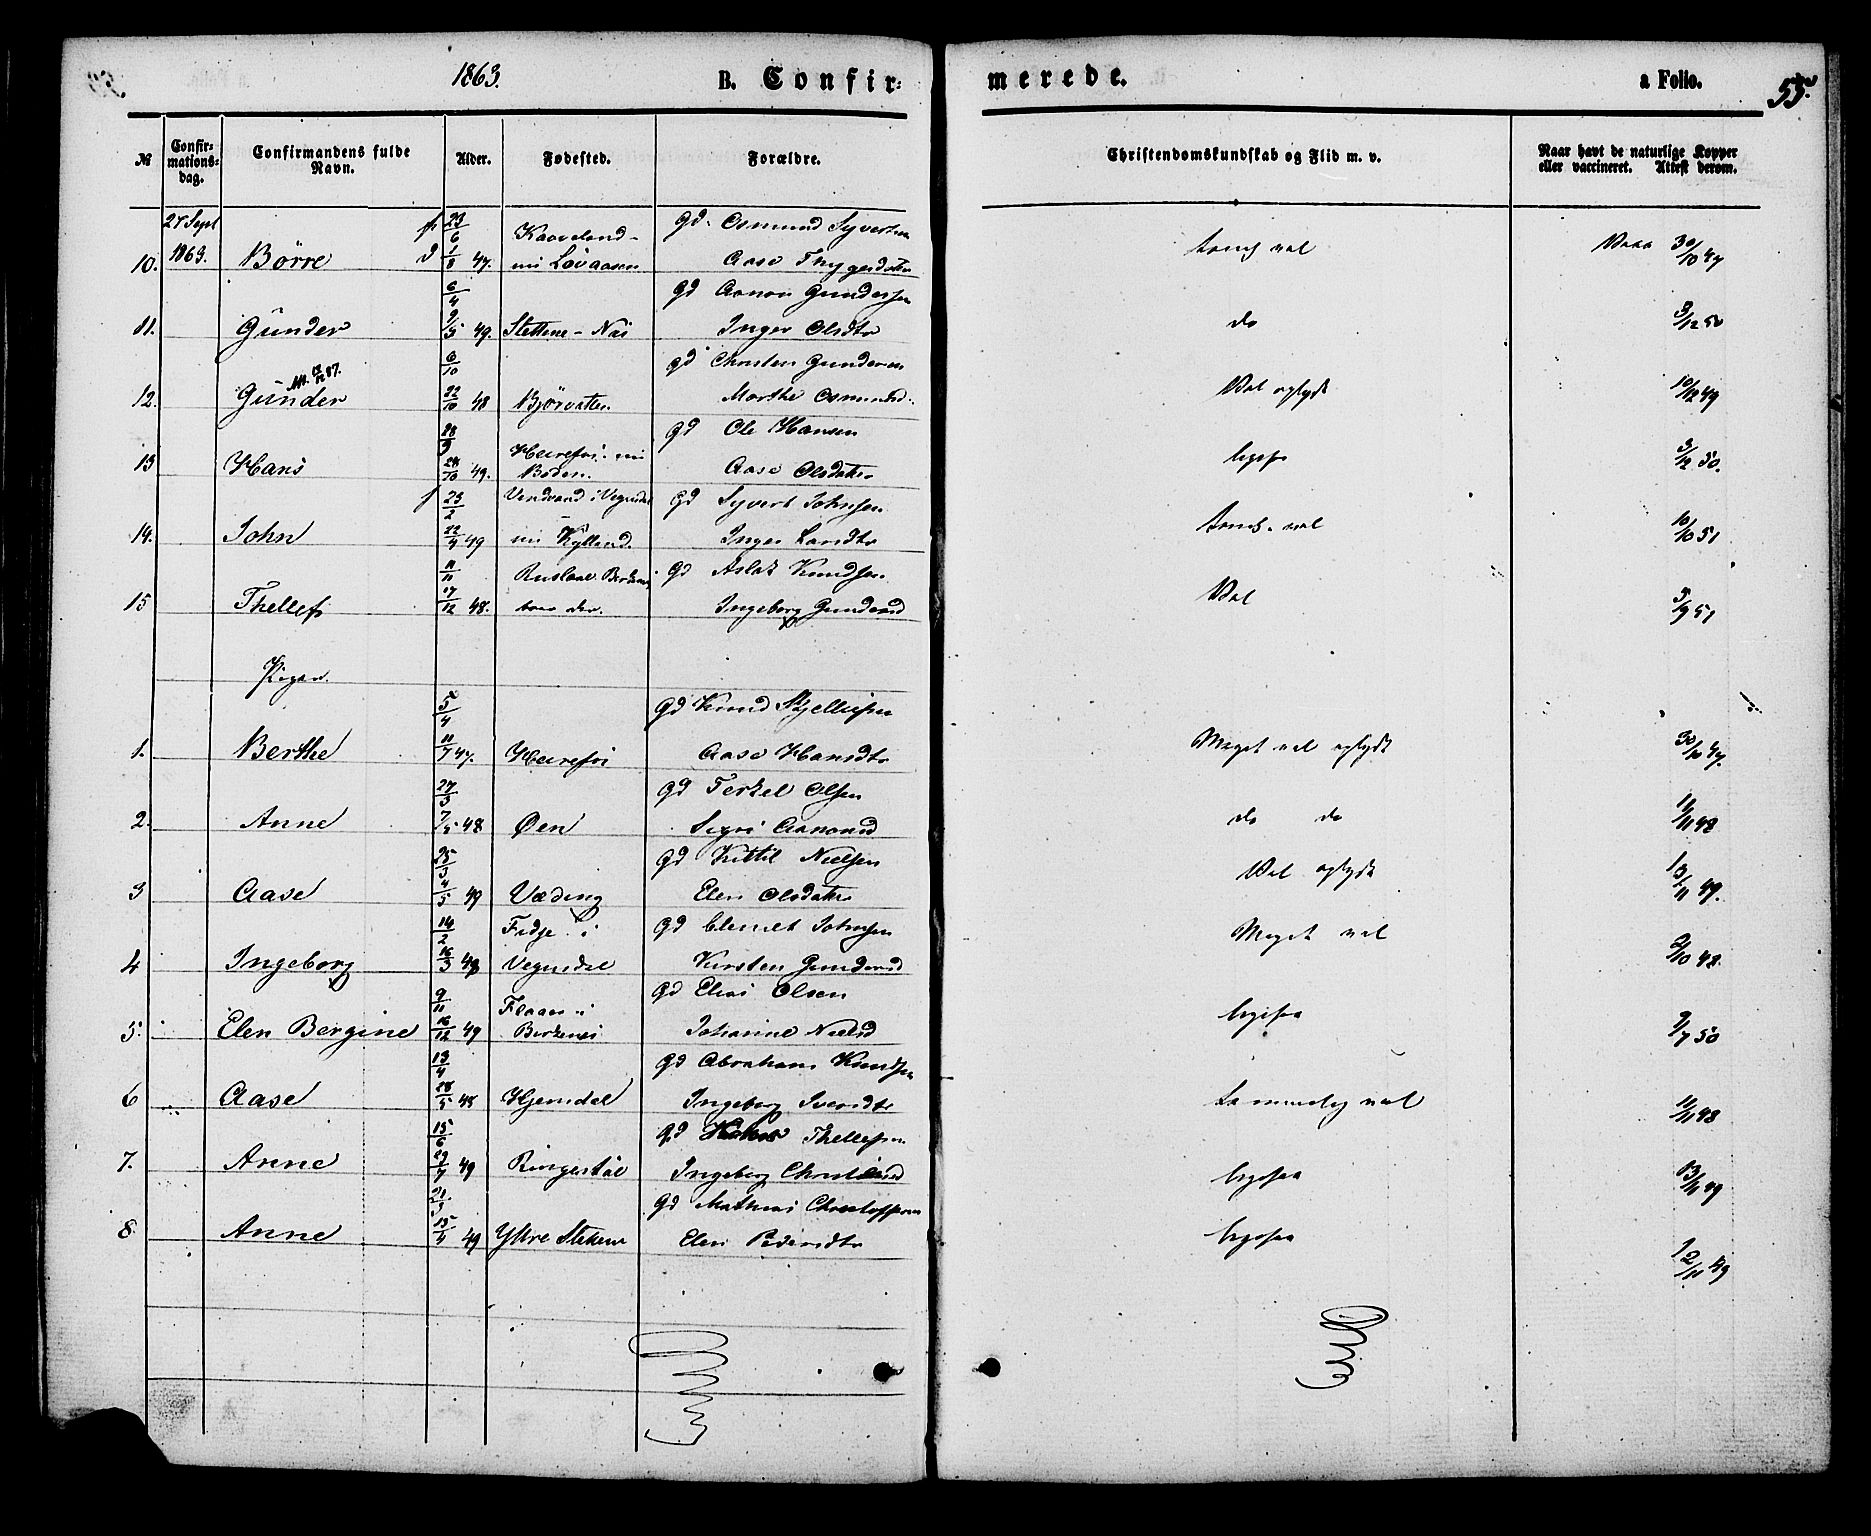 1863.
B. Confir-
merede.
a Folio.
55.
№
Confir-
mations-
dag.
Confirmandens fulde
Navn.
Alder.
Fødested.
Forældre.
Christendomskundskab og Flid m. v.
Naar havt de naturlige Kopper
eller vaccineret. Attest derom.
27 Sept
1863.
10. Børre
f. 23/6
d 1/8 47.
gd. Osmund Syvertsen
Aase Thygesdatter
30/10 47
11. Gunder
6/4
9/5 49.
Stettene-Næs
gd Aanon Gundersen
Inger Olsdtr
do
3/12 50
12. Gunder
6/10
22/10 48
Bjørvatten
gd Christen Gundersen
Marthe Osmundsd.
Vel oplyst
10/12 49
13 Hans
28/10 49.
Herefos. nu
Boden.
gd Ole Hansen
Aase Olsdatter
ligesaa
3/12 50.
14. John
f 23/2
22/4 49
i Vegusdal
nu
gd Syvert Johnsen
Inger
10/10 51
15 Thellef
11/11
17/12 48.
gd Aslak Knudsen
Ingeborg Gundersd
Vel
5/9 51
Piger.
1. Berthe
5/4
11/7 47.
Herefos
gd Knud Kjellesen
Aase Hansdtr
Meget vel oplyst
30/10 47.
2. Anne
27/3
7/5 48
Øen
gd Terkel Olsen
Sigri Aanonsd
do do
11/11 48
3 Aase
25/3
4/5 49
Væding
gd Kittil Nielsen
Elen Olsdatter
Vel oplyst
13/11 49.
4 Ingeborg
14/2
16/3 48
Fidje i
Vegusdal
gd Clemet Johnsen
Kirsten Gundersd
Meget vel
2/10 48.
5. Elen Bergine
9/11
16/12 49
Flaaen i
Birkenes
gd Elias Olsen
Johanne Nielsd
ligesaa
9/7 50
6 Aase
13/4
28/5 48
Hjemdal
gd Abraham Knudsen
Ingeborg Iversdtr
temmelig vel
11/11 48
7. Anne
15/6
29/7 49
Ringestøl
gd Thellefsen
Ingeborg Christensd
ligesaa
13/11 49
8 Anne
21/3
15/4 49
Ytre Stekene
gd Mathias Christophersen
Elen Pedersdtr
ligesaa
12/11 49